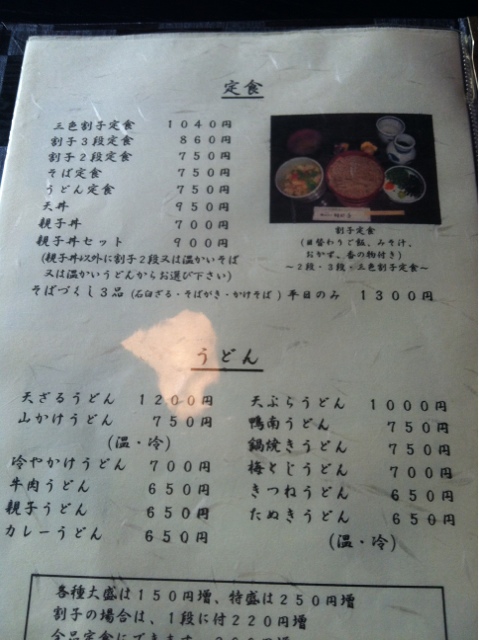 定食
三色割子定食 1040円
割子3段定食 860円
割子2段定食 750円
そば定食 750円
うどん定食 750円
天丼 950円
親子丼 700円
親子丼セット 900円
(親子丼以外に割子2段又は温かいそば
又は温かいうどんからお選び下さい)
そばづくし3品 (石臼ざる・そばがき・かけそば) 平日のみ 1300円
割子定食
(日替わりご飯、みそ汁、
おかず、香の物付き)
～2段・3段・三色割子定食～
うどん
天ざるうどん 1200円
山かけうどん 750円
(温・冷)
冷やかけうどん 700円
牛肉うどん 650円
親子うどん 650円
カレーうどん 650円
天ぷらうどん 1000円
鴨南うどん 750円
鍋焼きうどん 750円
梅とじうどん 700円
きつねうどん 650円
たぬきうどん 650円
(温・冷)
各種大盛は150円増、特盛は250円増
割子の場合は、1段に付220円増